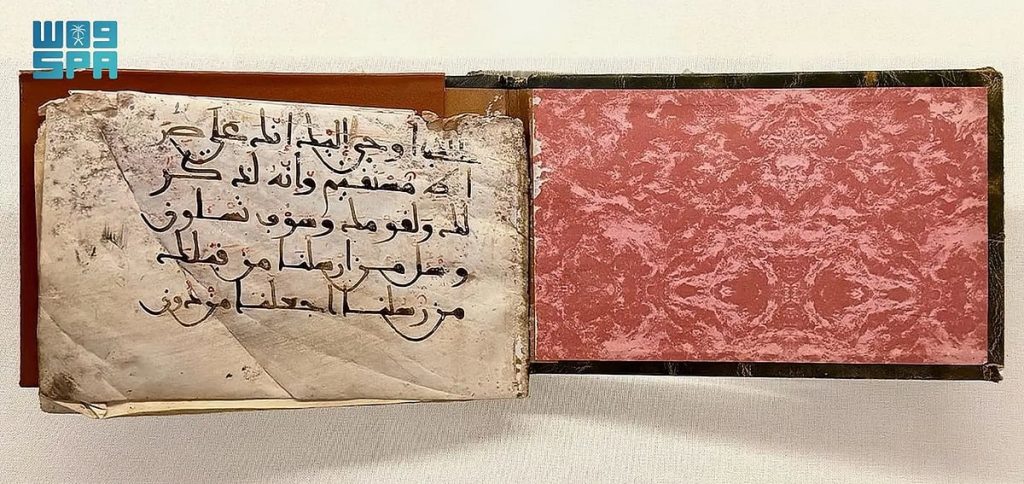 واس
SPA
اوحي اليك انك على صر
اط مستقيم وانه لذكر
لك ولقومك وسوف تسلون
وسل من ارسلنا من قبلك
من رسلنا اجعلنا من دون